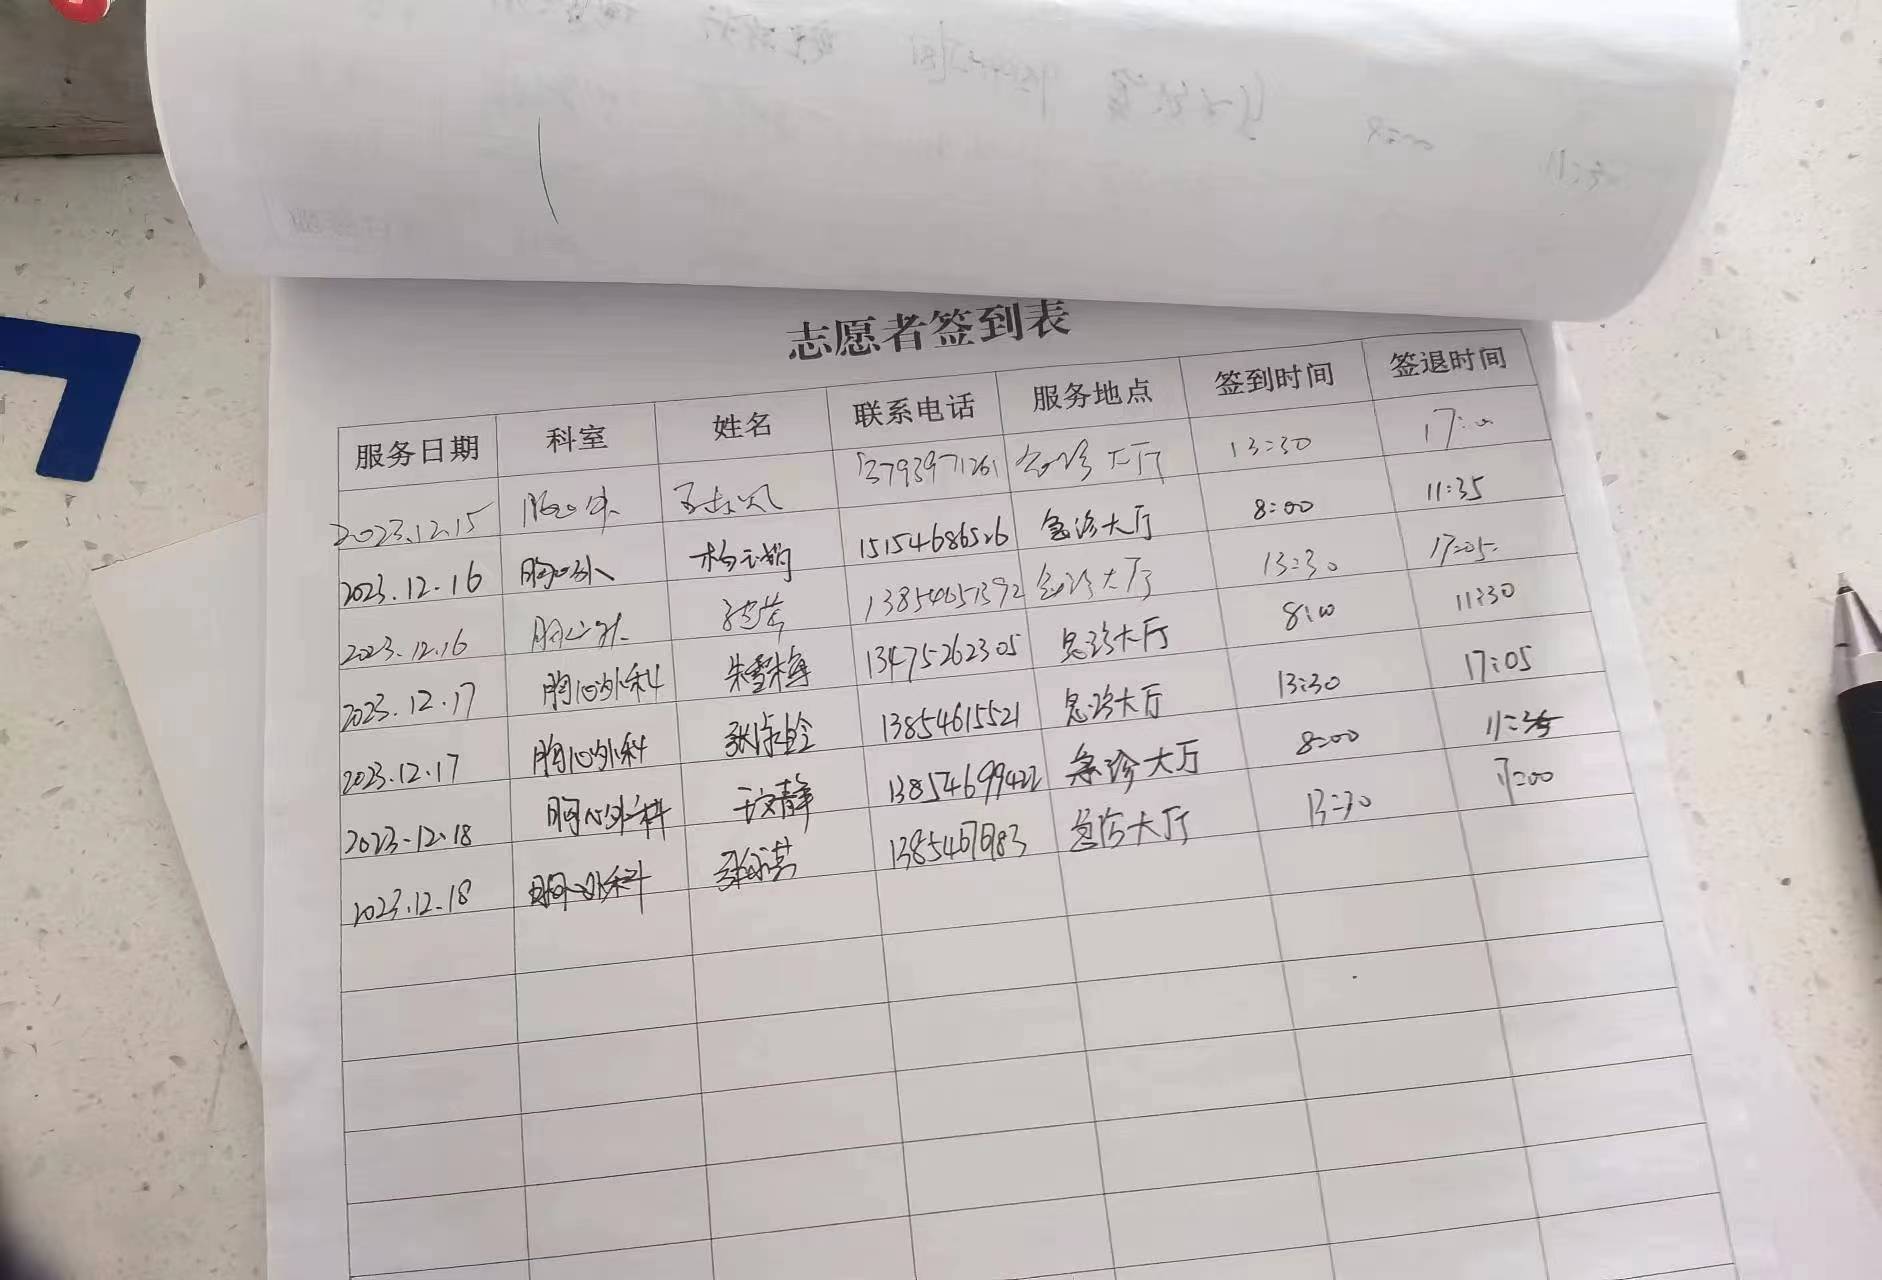 志愿者签到表
服务日期 科室 姓名 联系电话 服务地点 签到时间 签退时间
2023.12.15 13793971261 急诊大厅 13:30 17:00
2023.12.16 胸心外 15154686526 急诊大厅 8:00 11:35
2023.12.16 胸心外 13854651392 急诊大厅 13:30 17:05
2023.12.17 胸心外科 朱雪梅 13475262305 急诊大厅 8:00 11:30
2023.12.17 胸心外科 13854615521 急诊大厅 13:30 17:05
2023.12.18 胸心外科 于文静 13854699422 急诊大厅 8:00
2023.12.18 胸心外科 急诊大厅 13:30 17:00